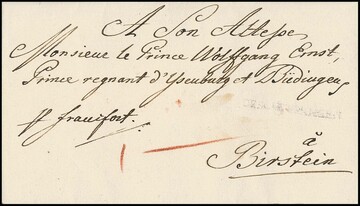 A Son Altesse,
Monsieur le Prince Wolffgang Ernst,
Prince regnant d'Ysenburg et Büdingen,
p frankfort.
à
Birstein